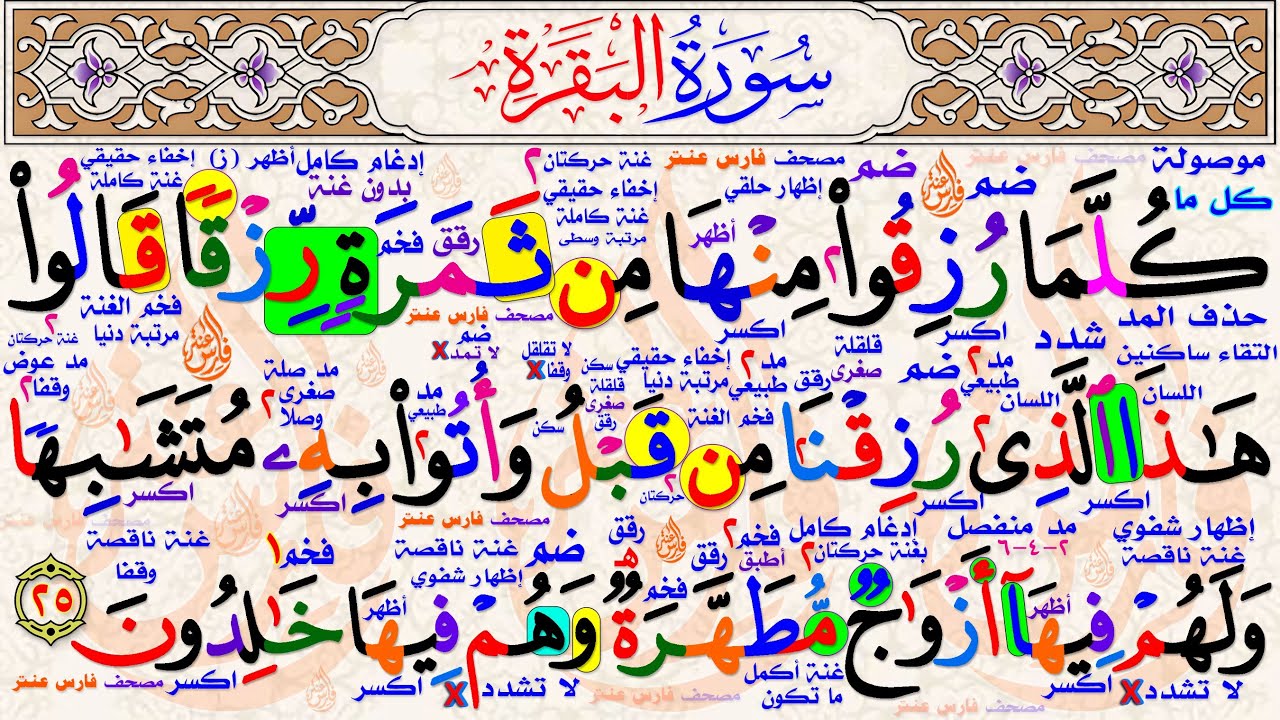 سُورَةُ البَقَرَةِ
موصولة مصحف فارس عنتر ضم مصحف فارس عنتر غنة حركتان ٢ إدغام كامل أظهر (ز) إخفاء حقيقي
كل ما ضم إظهار حلقي إخفاء حقيقي بدون غنة غنة كاملة
أظهر غنة كاملة مرتبة وسطى رقق فخم
كُلَّمَا رُزِقُواْ مِنْهَا مِن ثَمَرَةٍ رِّزْقًا قَالُواْ
حذف المد اكسر اكسر مصحف فارس عنتر فخم الغنة
التقاء ساكنين شدد مد ٢ طبيعي ضم قلقلة صغرى رقق مد ٢ طبيعي إخفاء حقيقي مرتبة دنيا لا تقلقل وقفا X ضم لا تمد X مرتبة دنيا غنة حركتان ٢
اللسان اللسان فخم الغنة سكن قلقلة صغرى رقق سكن مد طبيعي مد صلة صغرى وصلا ٢ مد عوض وقفا ٢
هَٰذَا ٱلَّذِى رُزِقْنَا مِن قَبْلُ وَأُتُواْ بِهِۦ مُتَشَٰبِهًا
اكسر اكسر حركتان ٢ اكسر اكسر
إظهار شفوي مد منفصل إدغام كامل فخم ٢ رقق مصحف فارس عنتر مصحف فارس عنتر
غنة ناقصة ٢-٤-٦ بغنة حركتان ٢ أطبق رقق ضم غنة ناقصة فخم غنة ناقصة
أظهر فخم إظهار شفوي أظهر وقفا
وَلَهُمْ فِيهَآ أَزْوَٰجٌ مُّطَهَّرَةٌ وَهُمْ فِيهَا خَٰلِدُونَ ٢٥
لا تشدد X اكسر غنة أكمل ما تكون لا تشدد X اكسر اكسر
مصحف فارس عنتر مصحف فارس عنتر مصحف فارس عنتر